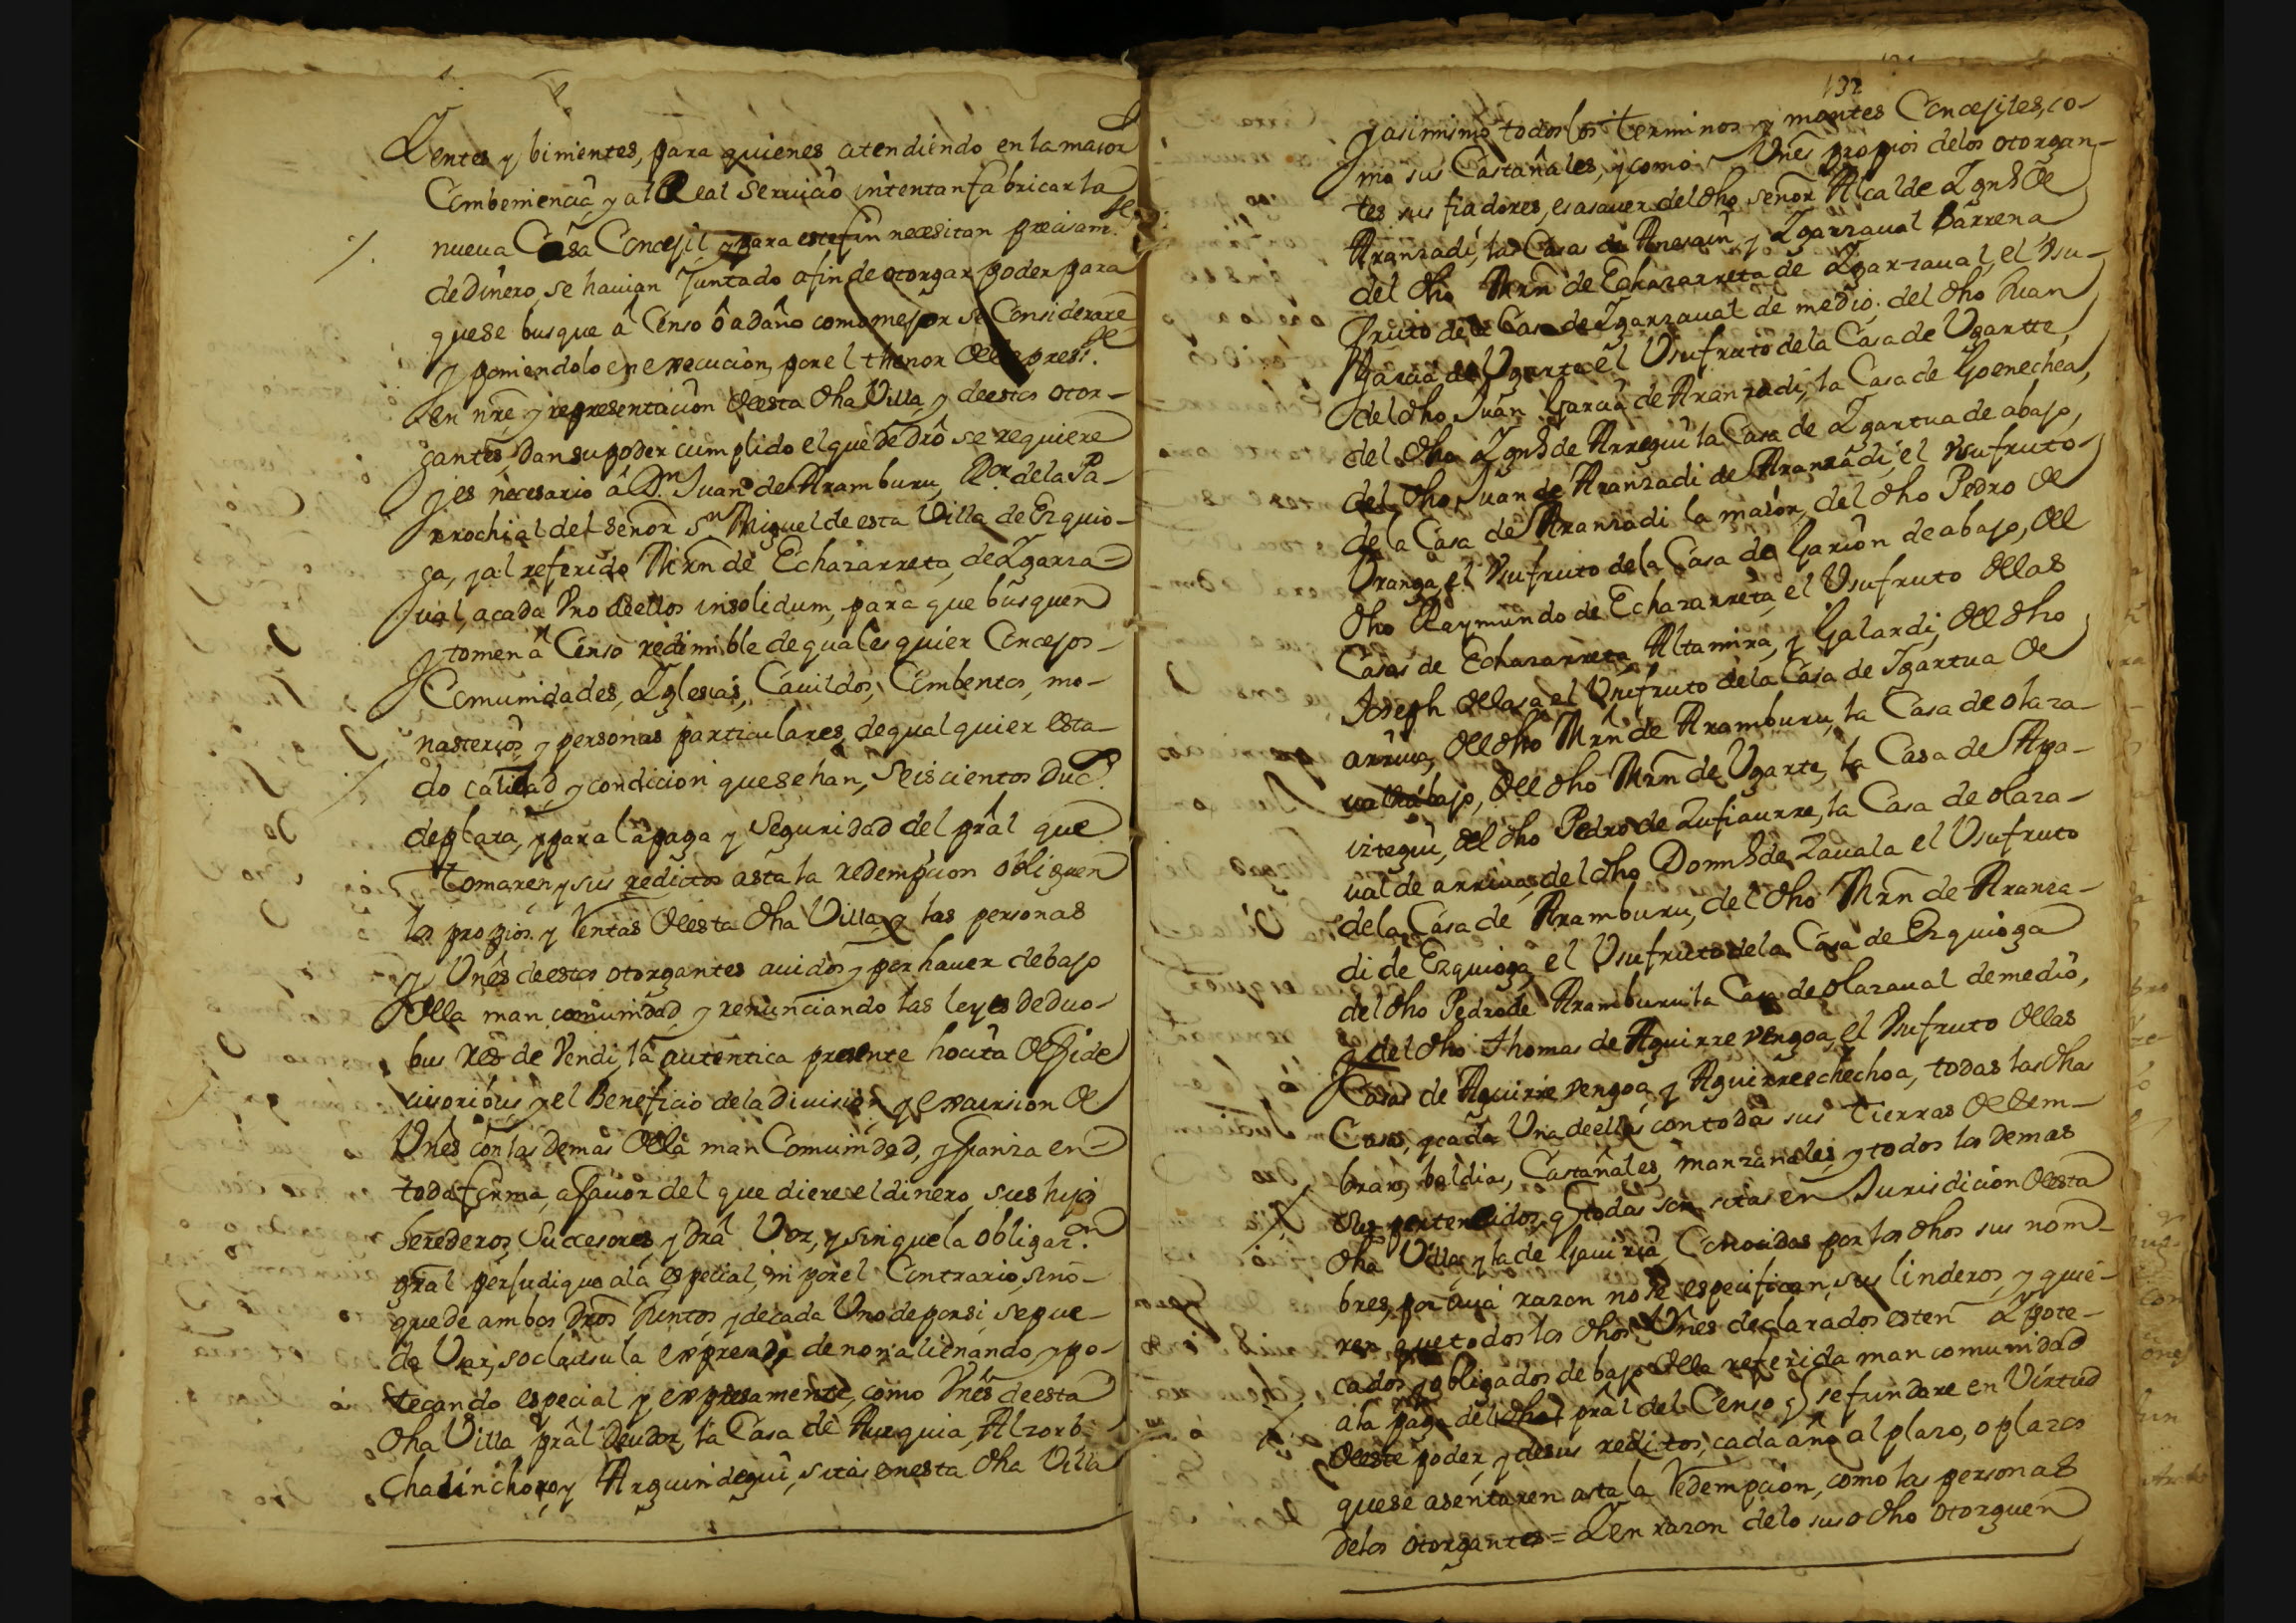 Zentes y binientes, para quienes atendiendo en la maior
Combeniencia, y al Real Seruicio intentan fabricar la
nueua Casa Concejil, y para este fin necesitan precisam.te
de Dinero, se hauian Juntado a fin de otorgar poder para
que se busque â Censo ô a daño como mejor se Considerare
y poniendolo en execucion, por el thenor de el pres.te
en nrê, y representacion de esta dha Villa, y de estos otor-
gantes, Dan su poder cumplido el que de Drô se requiere
y es necesario â D.n Juan de Aramburu, R.or de la Pa-
rrochial del señor S.n Miguel de esta Villa de Ezquio-
ga, y al referido Mrn de Echazarreta, de Zgarza-
ual, a cada Vno de ellos insolidum, para que busquen
y tomen â Censo redimible de quales quier Concejos-
Comunidades, Zglesias, Cauildos, Combentos, mo-
nasterios, y personas particulares, de qual quier esta-
do calidad, y condicion que se han, Seiscientos Duc.s
de plata, y para la paga y Seguridad del prâl que
tomaren, y sus redictos asta la redempcion obliguen
los propios. y Rentas de esta dha Villa, y las personas
y Vnês de estos otorgantes auidos y por hauer debajo
de la man comunidad, y renunciando las leyes de duo-
bus Res de Vendi, la autentica presente hocita de fide
iusoribus, y el Beneficio de la Diuision y excursion de
Vnês con las demas de la man Comunidad, y fianza en
toda forma, a fauor del que diere el dinero, sus hijos
herederos, Succesores, y Drâ Voz, y sin que la obligaz.on
gral perjudique a la especial, ni por el Contrario, sino-
que de ambos Dros Juntos, y de cada Vno de por si, se pue-
da Vsar, so clausula expresada de no na lienando, ypo-
tecando especial y expresamente, como Vnês de esta
dha Villa prâl Deudor, la Casa de
Chalinchoro, y Arguindegui, sitas en esta dha Villa
132
y asimismo todos los terminos y montes Concejiles, co-
mo sus Castañales, y como Vnês propios de los otorgan-
tes sus fiadores, es asauer del dho señor Alcalde Zgn.o de
Aranzadi, las Casas de Anesain, y Zgarzaual Barrena
del dho Mrn de Echazarreta de Zgarzaual, el Vsu-
fruto de la Casa de Zgarzaual de medio; del dho Juan
Garcia de Vgarte el Vsufruto de la Casa de Vgartte,
del dho Juan Garcia de Aranzadi, la Casa de Goenechea,
del dho Zgn.o de Arregui la Casa de Zgartua de abajo,
del dho Juan de Aranzadi de Aranzadi, el Vsufruto-
de la Casa de Aranzadi la maior, del dho Pedro de
Vranga, el Vsufruto de la Casa de Garion de abajo, del
dho Raymundo de Echazarreta, el Vsufruto de las
Casas de Echazarreta, Altamira, y Galardi, del dho
Joseph de lasa el Vsufruto de la Casa de Jgartua de
arriua, del dho Mrn de Aramburu, la Casa de olaza-
ual de abajo, del dho Mrn de Vgarte, la Casa de Apa-
iztegui, del dho Pedro de Zufiaurre, la Casa de olaza-
ual de arriua, del dho Domn.o de Zauala el Vsufruto
de la Casa de Aramburu, del dho Mrn de Aranza-
di de Ezquioga, el Vsufruto de la Casa de Ezquioga
del dho Pedro de Aramburu la Casa de olazaual de medio,
y del dho Thomas de Aguirre vengoa, el Vsufruto de las
Casas de Aguirre vengoa, y Aguirreechechoa, todas las dhas
Casas, y cada Vna de ellas con todas sus tierras de sem-
brar, baldias, Castañales, manzanales, y todos los demas
sus pertenecidos, q todas son sitas en Jurisdicion de esta
dha Villa, y la de Gauiria, Conocidas por los dhos sus nom-
bres, por cuia razon no se especifican, sus linderos, y quie-
ren que todos los dhos Vnes declarados esten a Zpote-
cados, y obligados debajo de la referida man comunidad
a la paga del dho prâl del Censo q se fundare en Virtud
de este poder, y de sus reditos, cada año al plazo, o plazos
que se asentaren asta la Redempcion, como las personas
de los otorgantes = Z en razon de lo suso dho otorguen